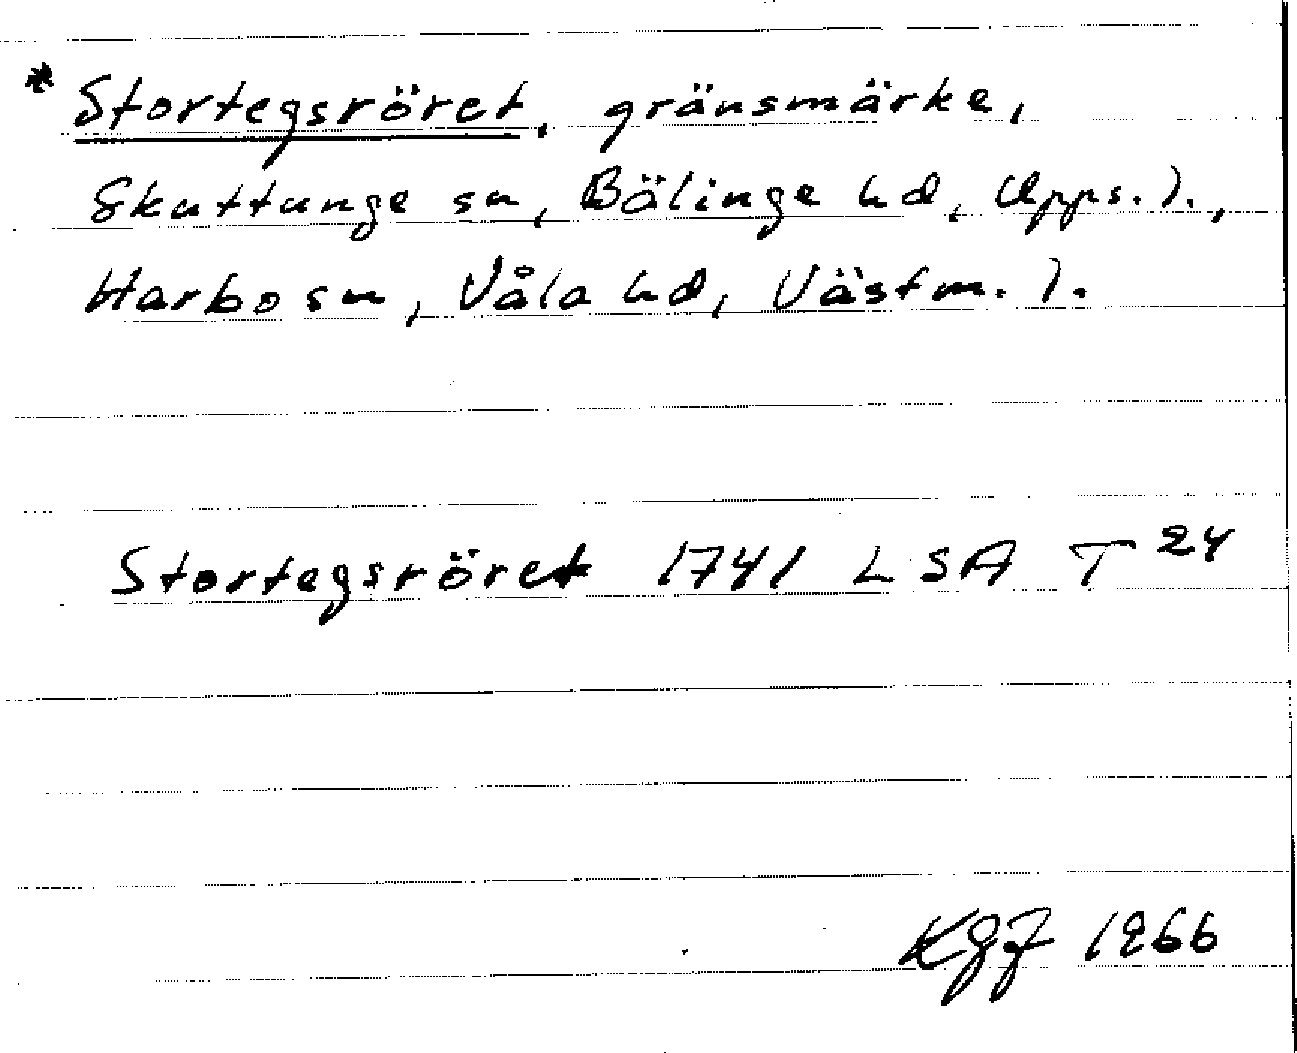 * Stortegsröret, gränsmärke,
Skuttunge sn, Bälinge hd, Upps. l.,
Harbo sn, Våla hd, Västm. l.
Stortegsröret 1741 LSA T 24
KGF 1966